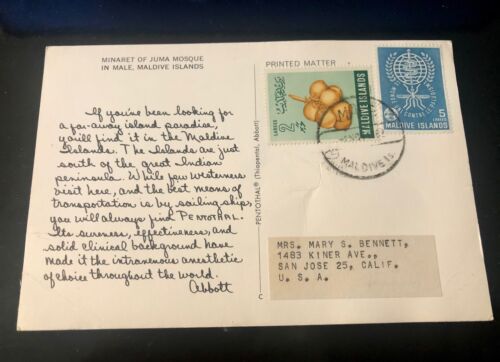 MINARET OF JUMA MOSQUE
IN MALE, MALDIVE ISLANDS
PRINTED MATTER
If you've been looking for
a far-away island paradise,
you'll find it in the Maldive
Islands. The Islands are just
south of the great Indian
peninsula. While few westerners
visit here, and the best means of
transportation is by sailing ships,
you will always find PENTOTHAL.
Its sureness, effectiveness, and
solid clinical background have
made it the intravenous anesthetic
of choice throughout the world.
Abbott
PENTOTHAL® (Thiopental, Abbott)
2 L
LAREES
MALDIVE ISLANDS
5
LAREES
MALDIVE ISLANDS
MALDIVE IS.
MRS. MARY S. BENNETT,
1483 KINER AVE.,
SAN JOSE 25, CALIF.
U. S. A.
C